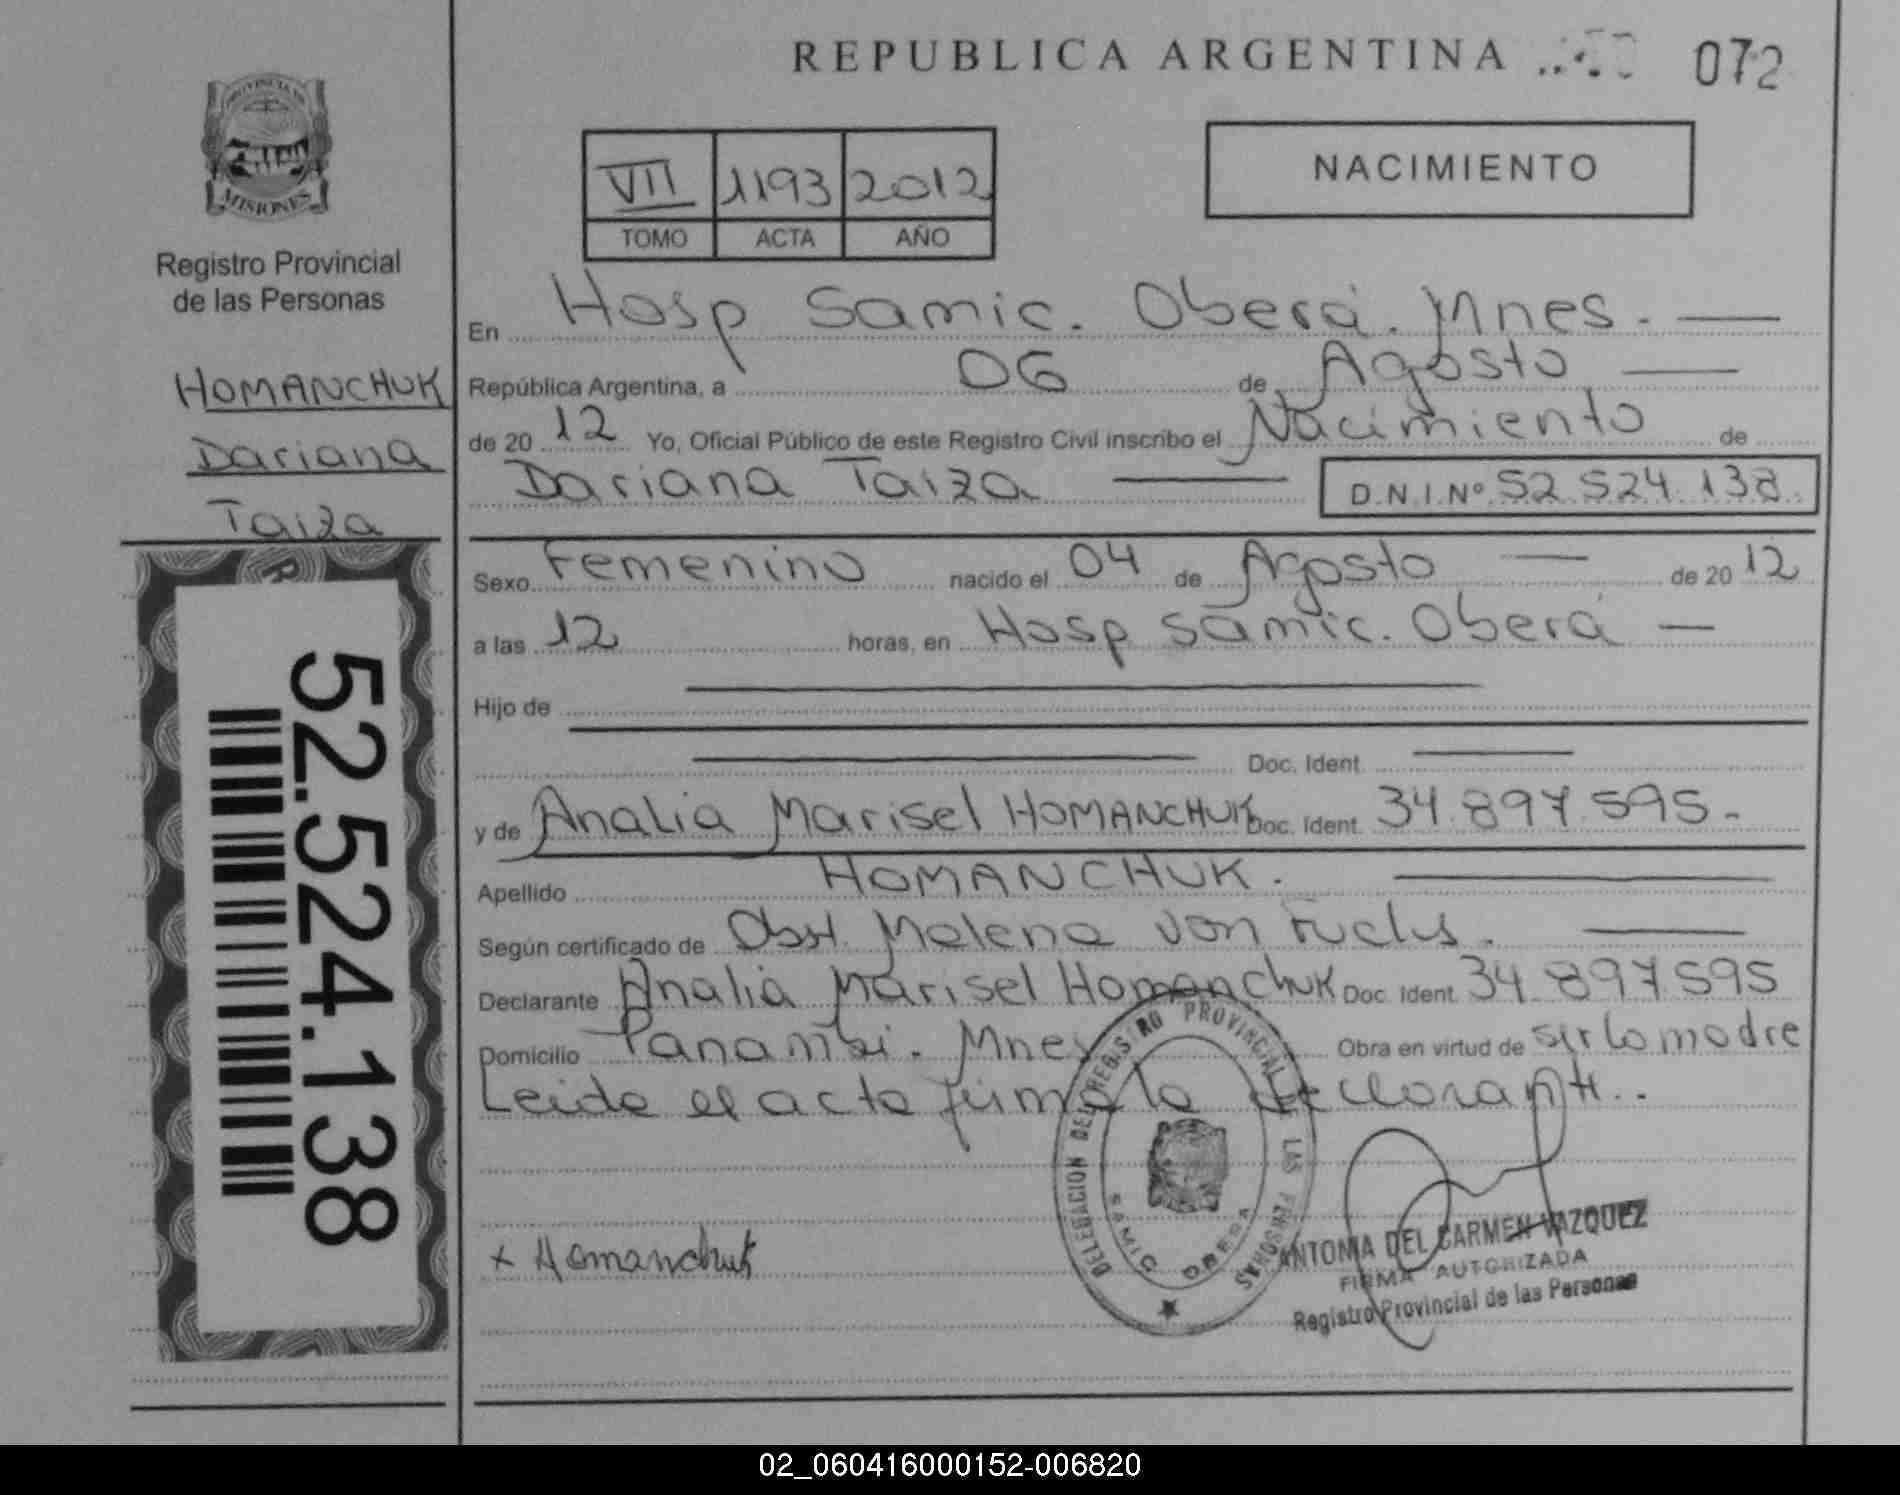 REPUBLICA ARGENTINA
072
PROVINCIA DE
MISIONES
Registro Provincial
de las Personas
HOMANCHUK
Dariana
Taiza
52.524.138
VII 1193 2012
TOMO ACTA AÑO
NACIMIENTO
En Hosp Samic. Oberá. Mnes.
República Argentina, a 06 de Agosto
de 20 12 Yo, Oficial Público de este Registro Civil inscribo el Nacimiento de
Dariana Taiza D.N.I.Nº 52.524.138.
Sexo Femenino nacido el 04 de Agosto de 20 12
a las 12 horas, en Hosp Samic. Oberá
Hijo de
Doc. Ident.
y de Analia Marisel HOMANCHUK Doc. Ident. 34.897.595.-
Apellido HOMANCHUK.
Según certificado de Obst. Malena Von
Declarante Analia Marisel Homanchuk Doc. Ident. 34.897.595
Domicilio Panambi. Mnes Obra en virtud de ser la madre
Leida el acta firma la declarante..
x Homanchuk
DELEGACION DEL REGISTRO PROVINCIAL DE LAS PERSONAS
SAMIC OBERA
ANTONIA DEL CARMEN VAZQUEZ
FIRMA AUTORIZADA
Registro Provincial de las Personas
02_060416000152-006820